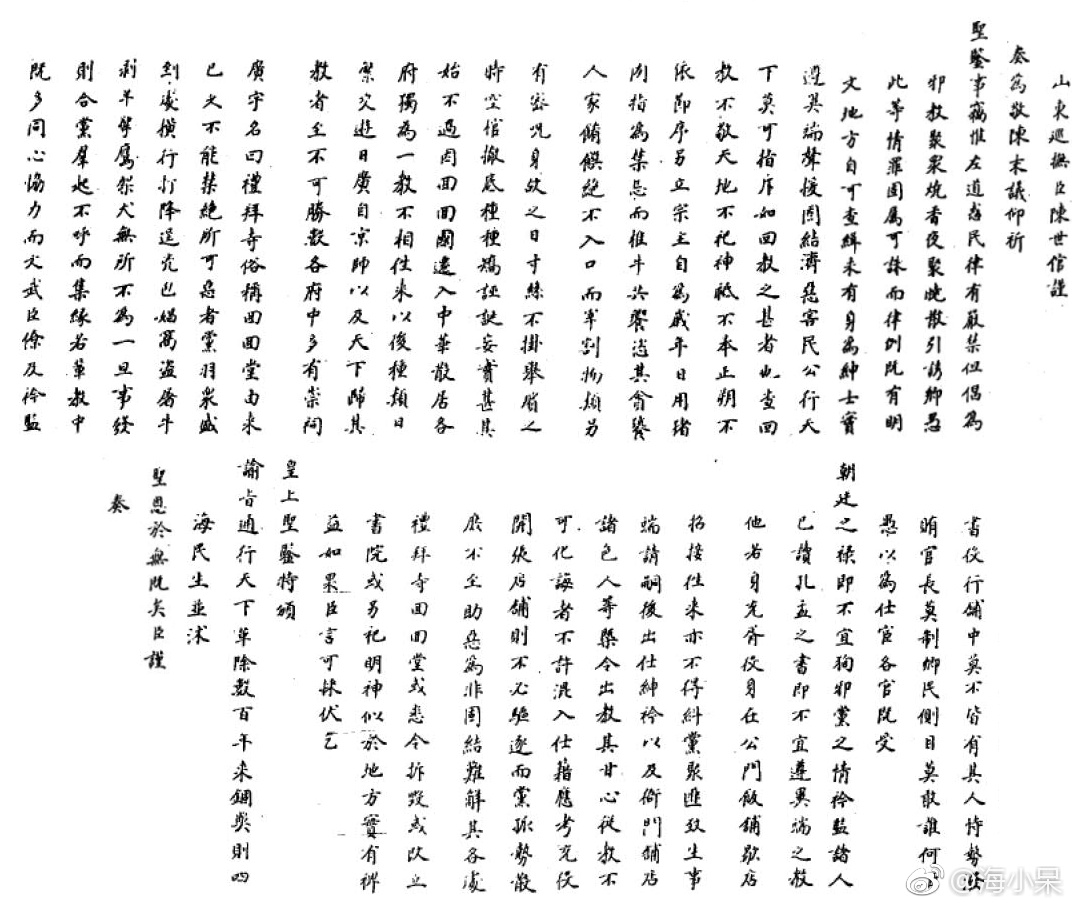 山東巡撫臣陳世倌謹
奏為敬陳末議仰祈
聖鑒事竊惟左道惑民律有嚴禁但倡為
邪教聚眾燒香夜聚曉散引誘鄉愚
此等情罪固屬可誅而律例既有明
文地方自可查緝未有身為紳士實
遵異端聲援固結濟惡害民公行天
下莫可指斥如回教之甚者也查回
教不敬天地不祀神祇不本正朔不
依節序另立宗主自為歲年日用豬
肉指為禁忌而椎牛共饗恣其貪饕
人家餚饌絕不入口而宰割物類另
有密咒身故之日寸絲不掛舉屑之
時空棺撤底種種矯誣誕妄實甚其
始不過因回回國遠入中華散居各
府獨為一教不相往來以後種類日
繁交遊日廣自京師以及天下歸其
教者至不可勝數各府中多有崇祠
廣宇名曰禮拜寺俗稱回回堂由來
已久不能禁絕所可惡者黨羽眾盛
到處橫行打降逞兇包娼窩盜屠牛
剥羊擎鷹架犬無所不為一旦事發
則合黨羣起不呼而集緣若輩教中
既多同心協力而文武臣僚及衿監
書役行舖中莫不皆有其人恃勢
賄官長莫制鄉民側目莫敢誰何
愚以為仕宦各官既受
朝廷之祿即不宜狥邪黨之情衿監諸人
已讀孔孟之書即不宜遵異端之教
他若身充胥役身在公門飯舖歇店
招接往來亦不得糾黨聚匪致生事
端請嗣後出仕紳衿以及衙門舖店
諸色人等槩令出教其甘心從教不
可化誨者不許混入仕籍應考充役
開張店舖則不必驅逐而黨孤勢散
庶不至助惡為非固結難解其各處
禮拜寺回回堂或悉令拆毀或改立
書院或另祀明神似於地方實有裨
益如果臣言可採伏乞
皇上聖鑒特頒
諭旨通行天下革除數百年來錮獘則四
海民生並沐
聖恩於無既矣臣謹
奏
@海小呆